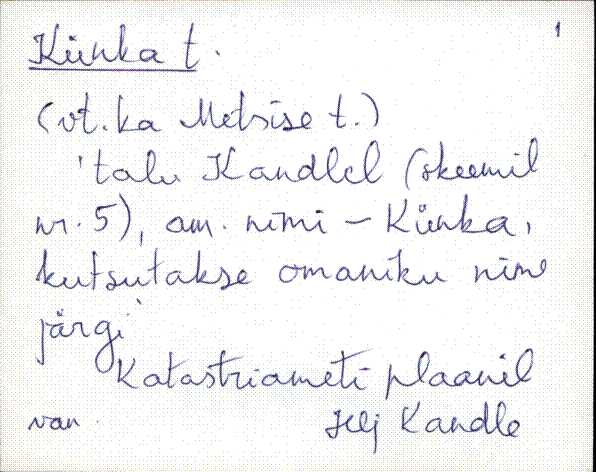 Künka t. 1
(vt. ka Metsise t.)
'talu Kandlel (skeemil
nr. 5), am. nimi - Künka,
kutsutakse omaniku nime
järgi'
Katastriameti plaanil
van. Kandle